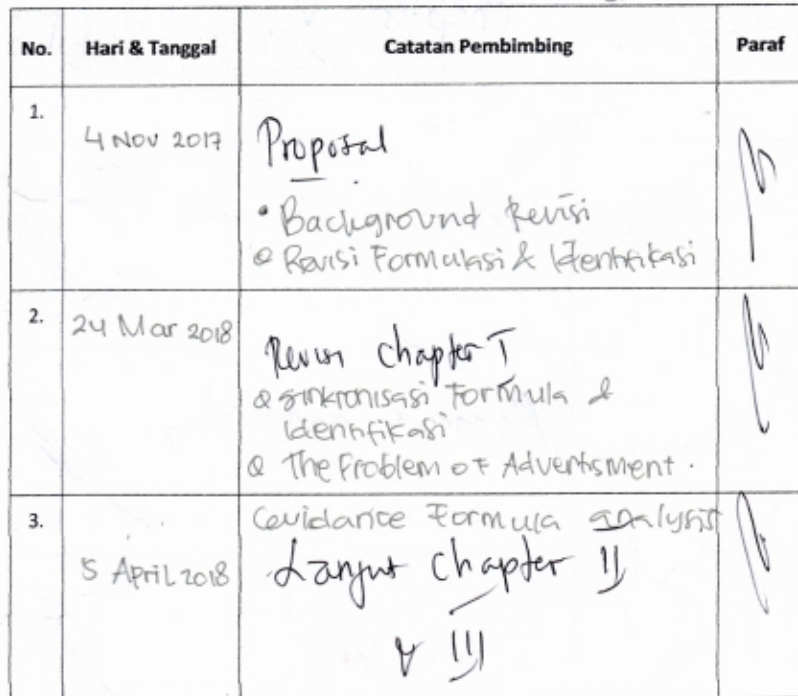 No. Hari & Tanggal Catatan Pembimbing Paraf
1.
4 Nov 2017
Proposal
• Background Revisi
• Revisi Formulasi & Identifikasi
2.
24 Mar 2018
Revisi Chapter I
• sinkronisasi Formula &
Identifikasi
• The Problem of Advertisment.
3.
Formula analysis
5 April 2018
Lanjut Chapter II
& III